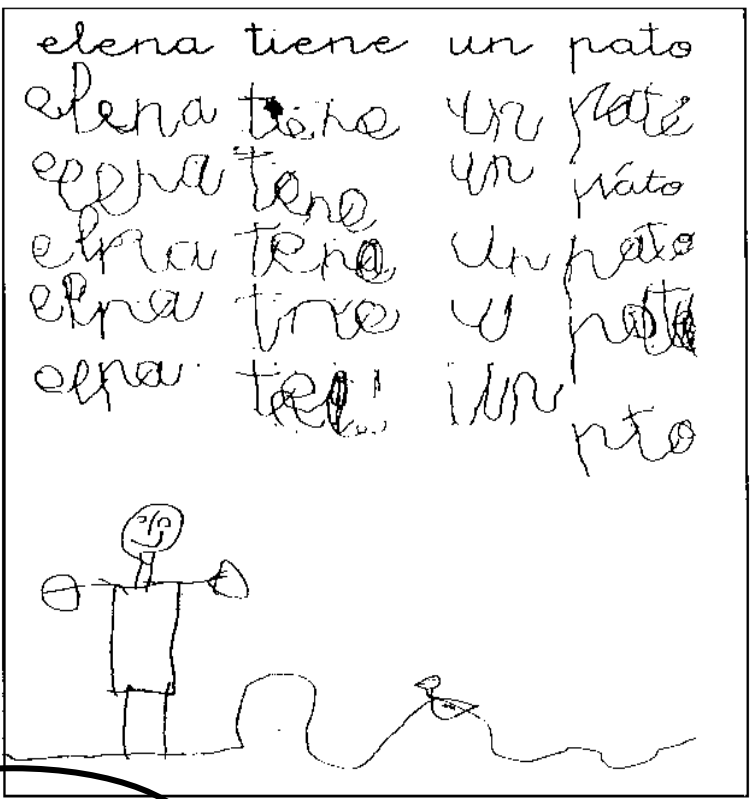 elena tiene un pato
elena tiene un pato
eena tene un páto
elna tene un pato
elna tne u pato
elna un
pto